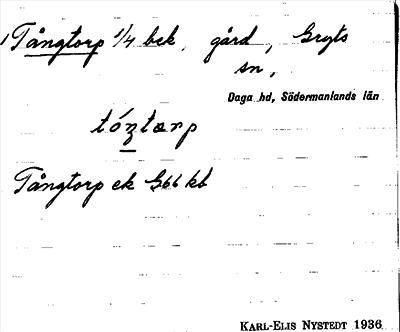 1 Tångtorp 1/4 bek, gård, Gryts
sn,
Daga hd, Södermanlands län
tóztarp
Tångtorp ek G66 kb
KARL-ELIS NYSTEDT 1936